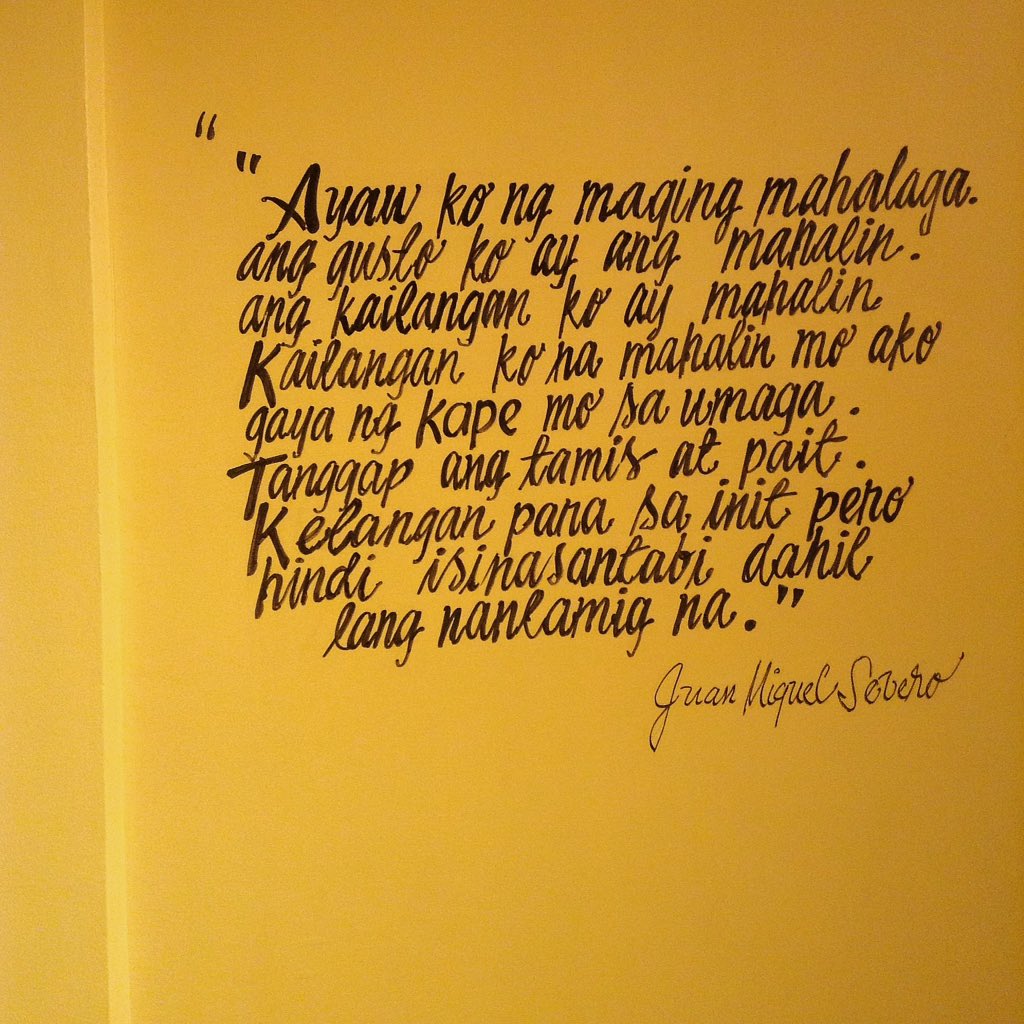 “
"Ayaw ko ng maging mahalaga.
ang gusto ko ay ang mahalin.
ang kailangan ko ay mahalin
Kailangan ko na mahalin mo ako
gaya ng kape mo sa umaga.
Tanggap ang tamis at pait.
Kelangan para sa init pero
hindi isinasantabi dahil
lang nanlamig na."
Juan Miguel Severo